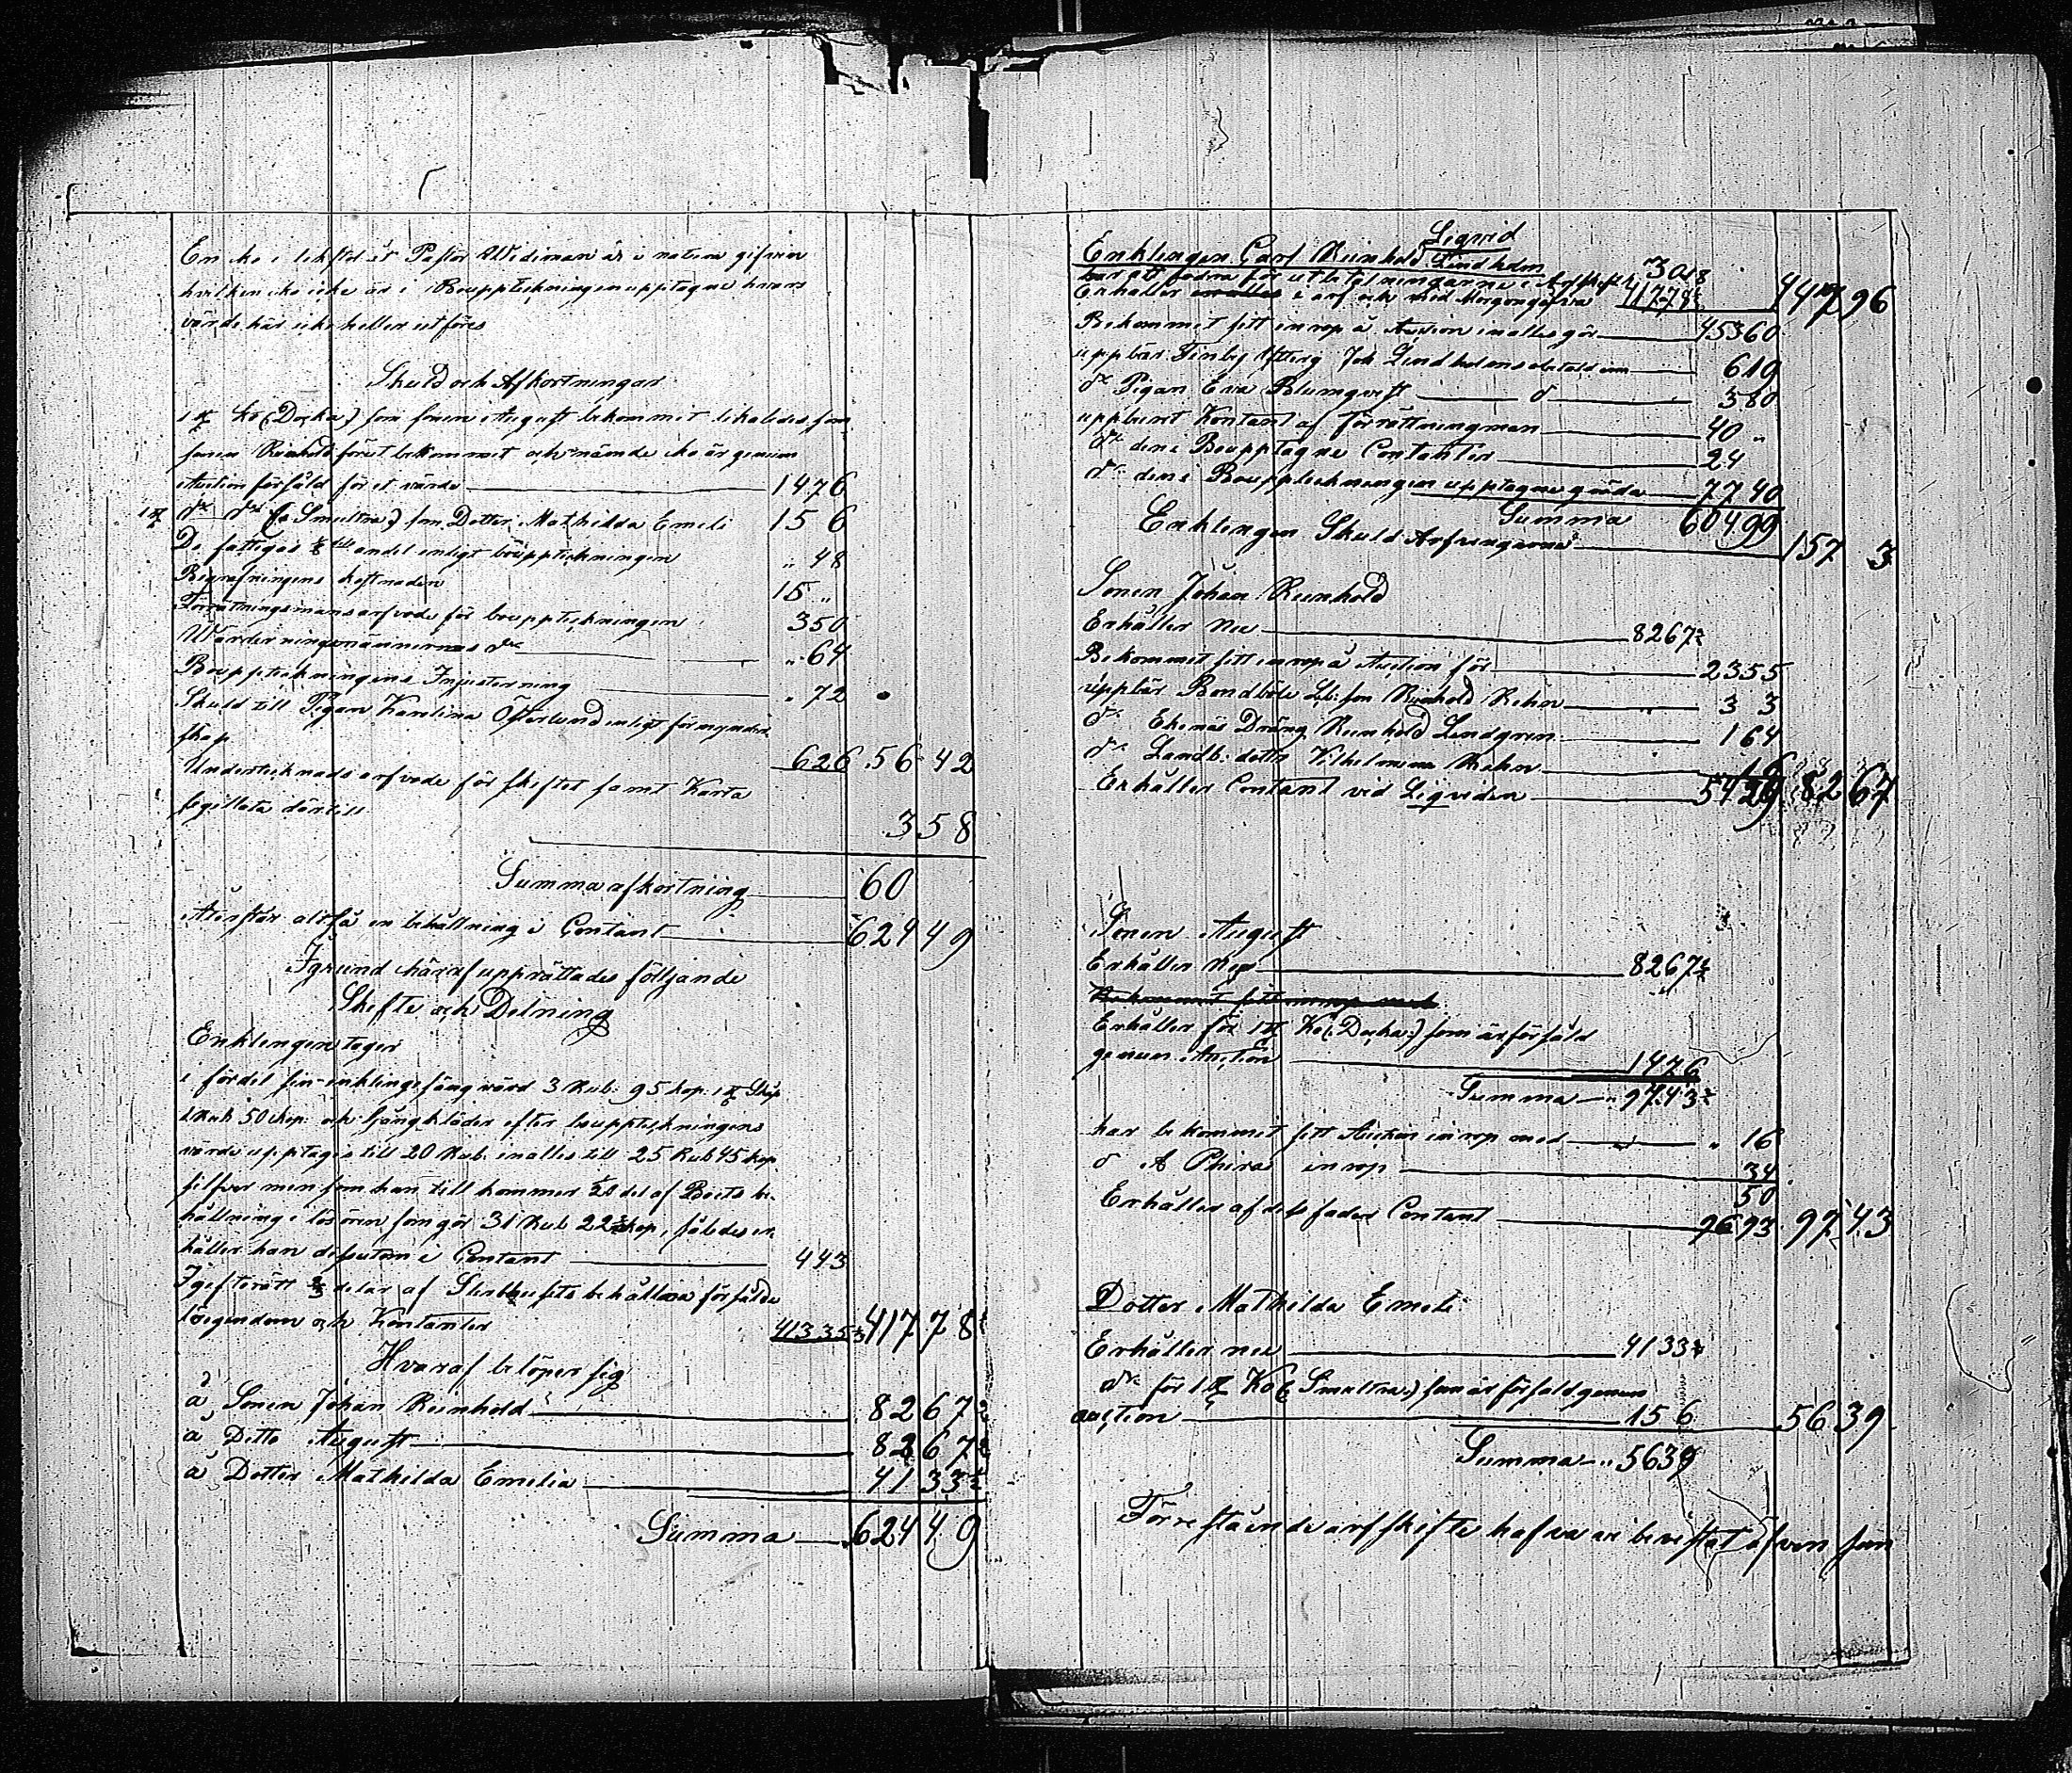 En ko i likstol åt Pastor Widiman är i natura gifven
hvilken ko icke är i Bouppteckningen upptagne hvars
värde här icke heller utföres
Skuld och Afkortningar
1 st ko (Docka) som sonen August bekommit likaledes som
sonen Reinhold förut bekommit och nämde ko är genom
Auction försåld för et värde 14 76
1 st dto dto (Smultra) son Dotter Mathilda Emeli 15 6
De fattigas 1/8 dels andel enligt bouppteckningen " 48
Begrafningens kostnaden 15 "
Förrättningsmans arfvode för bouppteckningen 3 50
Värderningsmännernas dto " 64
Bouppteckningens Injusterning " 72
Skuld till Pigan Karolina Österlund enligt förmynder
skap 6 26 56 42
Undertecknads arfvode för skiftet samt Karta
sigillata dertill 3 58
Summa afkortning 60
Återstår altså en behållning i Contant 624 49
I grund häraf upprättades följande
Skifte och Delning
Enklingen tager
i fördel sin enklingesäng värd 3 Rub: 95 kop. 1 st
1 Rub 50 kop: och Gångkläder efter bouppteckningens
värde upptagis till 20 Rub. inalles till 25 Rub 45 kop
silfver men som han till kommer 1/20 del af Boets be-
hållning i lösören som gör 31 Rub 22 kop, således er-
håller han dessutom i Contant 4 43
I gifterätt 2/3 delar af Sterbhusets behållna försålda
lösegendom och Kontanter 413 35 417 78
Hvaraf belöper sig
à Sonen Johan Reinhold 82 67
à Ditto August 82 67
à Dotter Mathilda Emelia 41 33
Summa 624 49
Liqvid
Enklingen Carl Reinhold Lindholm
bör att svara för utbetalningarne i Arfskiftet 30 18
Erhåller i arf och med Morgongåfva 417 78 447 96
Bekommit sitt inrop å Auction inalles gör 453 60
uppbär Joh Lindholms 6 19
dto Pigan Eva Blumqvist d 3 80
uppburit Kontant af förrättningman 40 "
dto den i Boupptagne Contanter 24
dto den i Bouppteckningen upptagne gröda 77 40
Summa 604 99
Enklingen Skuld Arfvingarne 157 3
Sonen Johan Reinhold
Erhåller nu 82 67
Bekommit sitt inrop å Auction för 23 55
uppbär Bondböle Lb: son Reinhold Rehn 3 3
dto Ekenäs Dräng Reinhold Lindgren 1 64
dto Landb: dotter Vilhelmina Rehn 16
Erhåller Contant vid Liqviden 54 29 82 67
Sonen August
Erhåller nu 82 67
Erhåller för 1 st Ko (Docka) som är försåld
genom Auction 14 76
Summa 97 43
har bekommit sitt Auction inrop med " 16
d inrop 34
50
Erhåller af dess fader Contant 96 93 97 43
Dotter Mathilda Emeli
Erhåller nu 41 33
dto för 1 st Ko (Smultra) som är försåld genom
auction 15 6 56 39
Summa 56 39
Förrestående arfskifte hafva vi bevistat äfven som